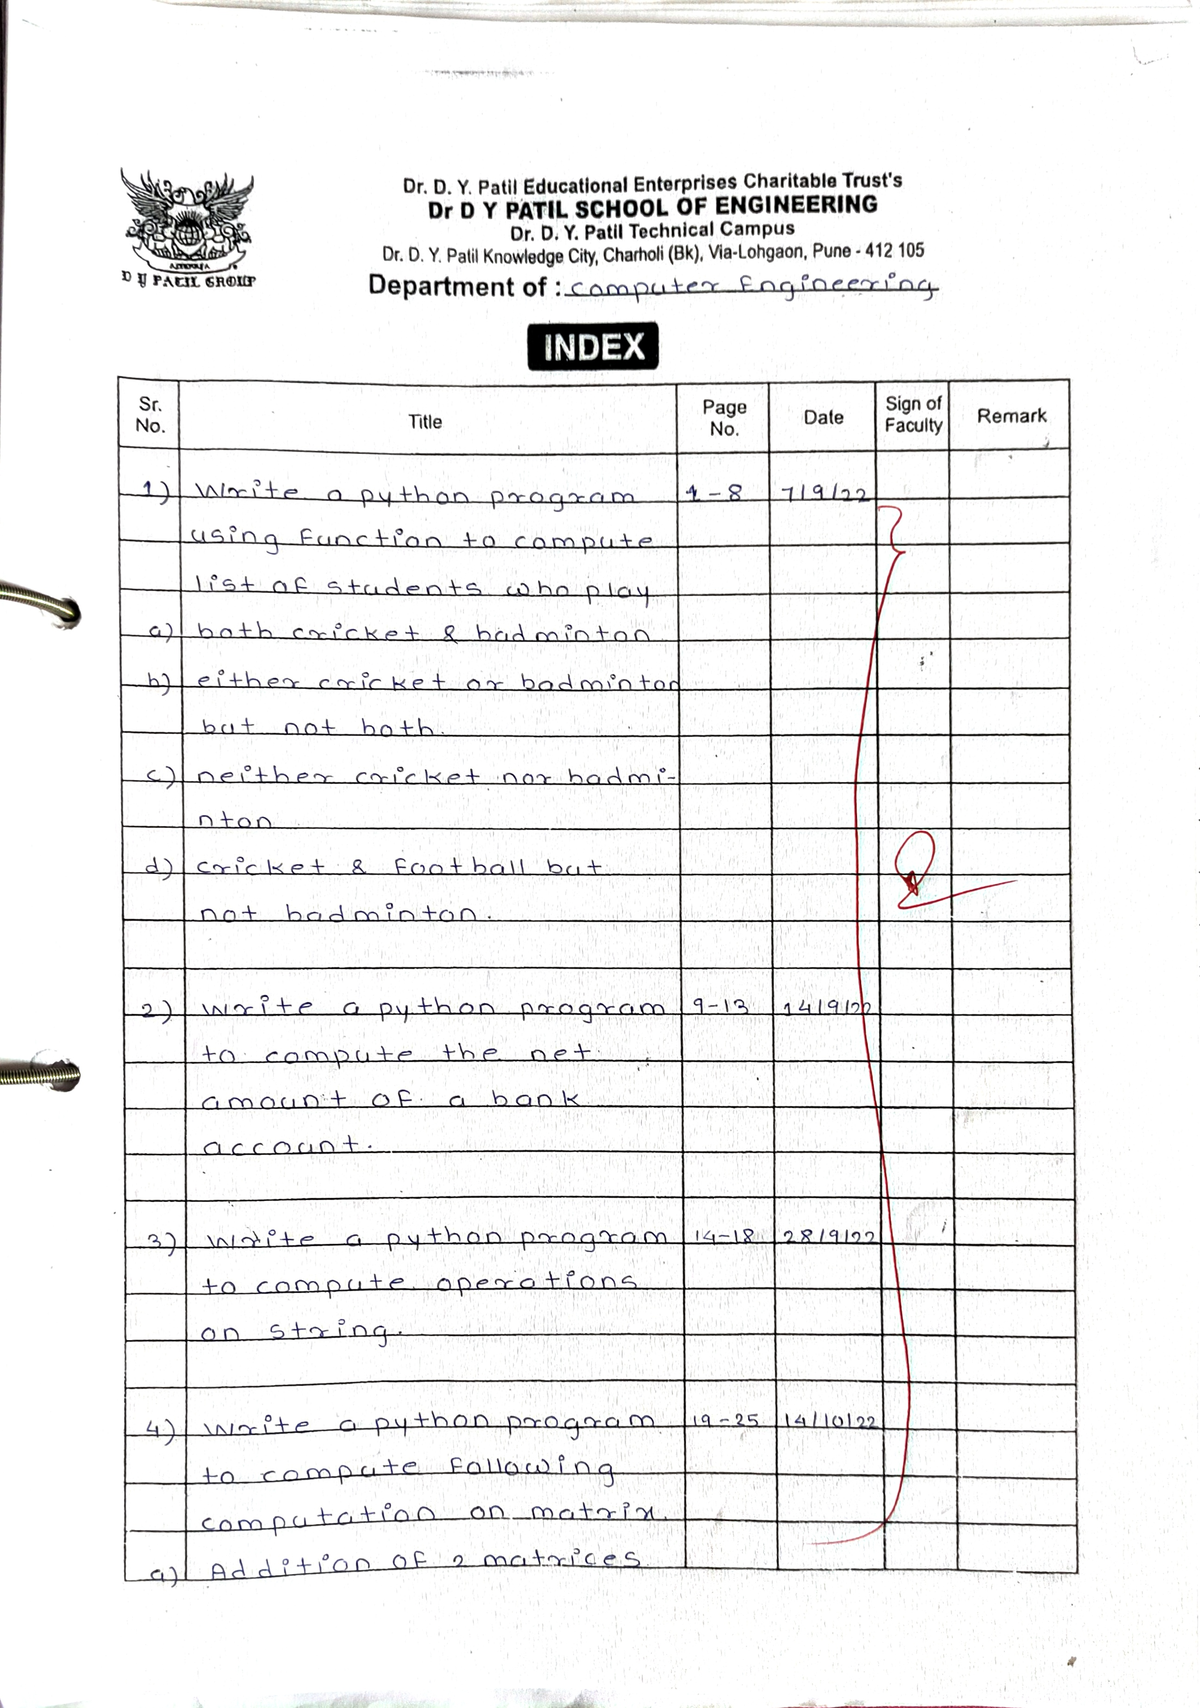 Dr. D. Y. Patil Educational Enterprises Charitable Trust's
Dr D Y PATIL SCHOOL OF ENGINEERING
Dr. D. Y. Patil Technical Campus
Dr. D. Y. Patil Knowledge City, Charholi (Bk), Via-Lohgaon, Pune - 412 105
D Y PATIL GROUP
Department of : Computer Engineering
INDEX
Sr. No. Title Page No. Date Sign of Faculty Remark
1) Write a python program 1-8 7/9/22
using function to compute
list of students who play
a) both cricket & badminton
b) either cricket or badminton
but not both.
c) neither cricket nor badmi-
nton
d) cricket & football but
not badminton.
2) Write a python program 9-13 14/9/22
to compute the net
amount of a bank
account.
3) Write a python program 14-18 28/9/22
to compute operations
on string.
4) Write a python program 19-25 14/10/22
to compute following
computation on matrix.
a) Addition of 2 matrices